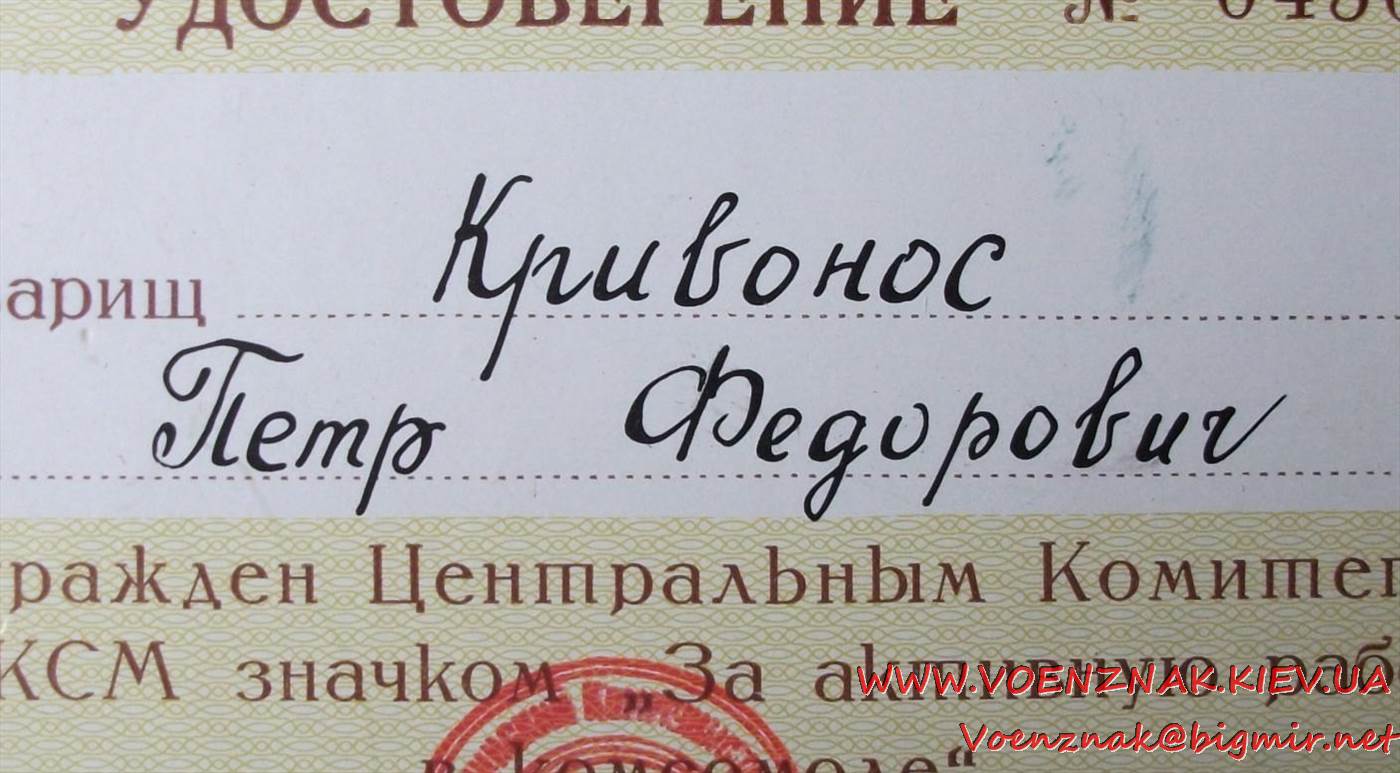 УДОСТОВЕРЕНИЕ №
арищ Кривонос
Петр Федорович
ражден Центральным Комитет
КСМ значком „За активную раб
в комсомоле“
WWW.VOENZNAK.KIEV.UA
Voenznak@bigmir.net